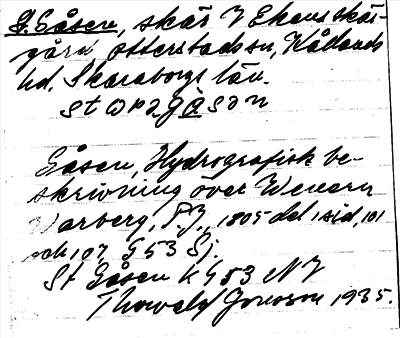 G. Gåsen, skär V Ekens skär-
gård Otterstads sn, Kållands
hd, Skaraborgs län.
Gåsen, Hydrografisk be-
skrivning över Wenern
Warberg, P.J., 1805 del 1 sid, 101
och 107, G 53 Sj.
St Gåsen K G53 NV
Thorvald Jonsson 1935.